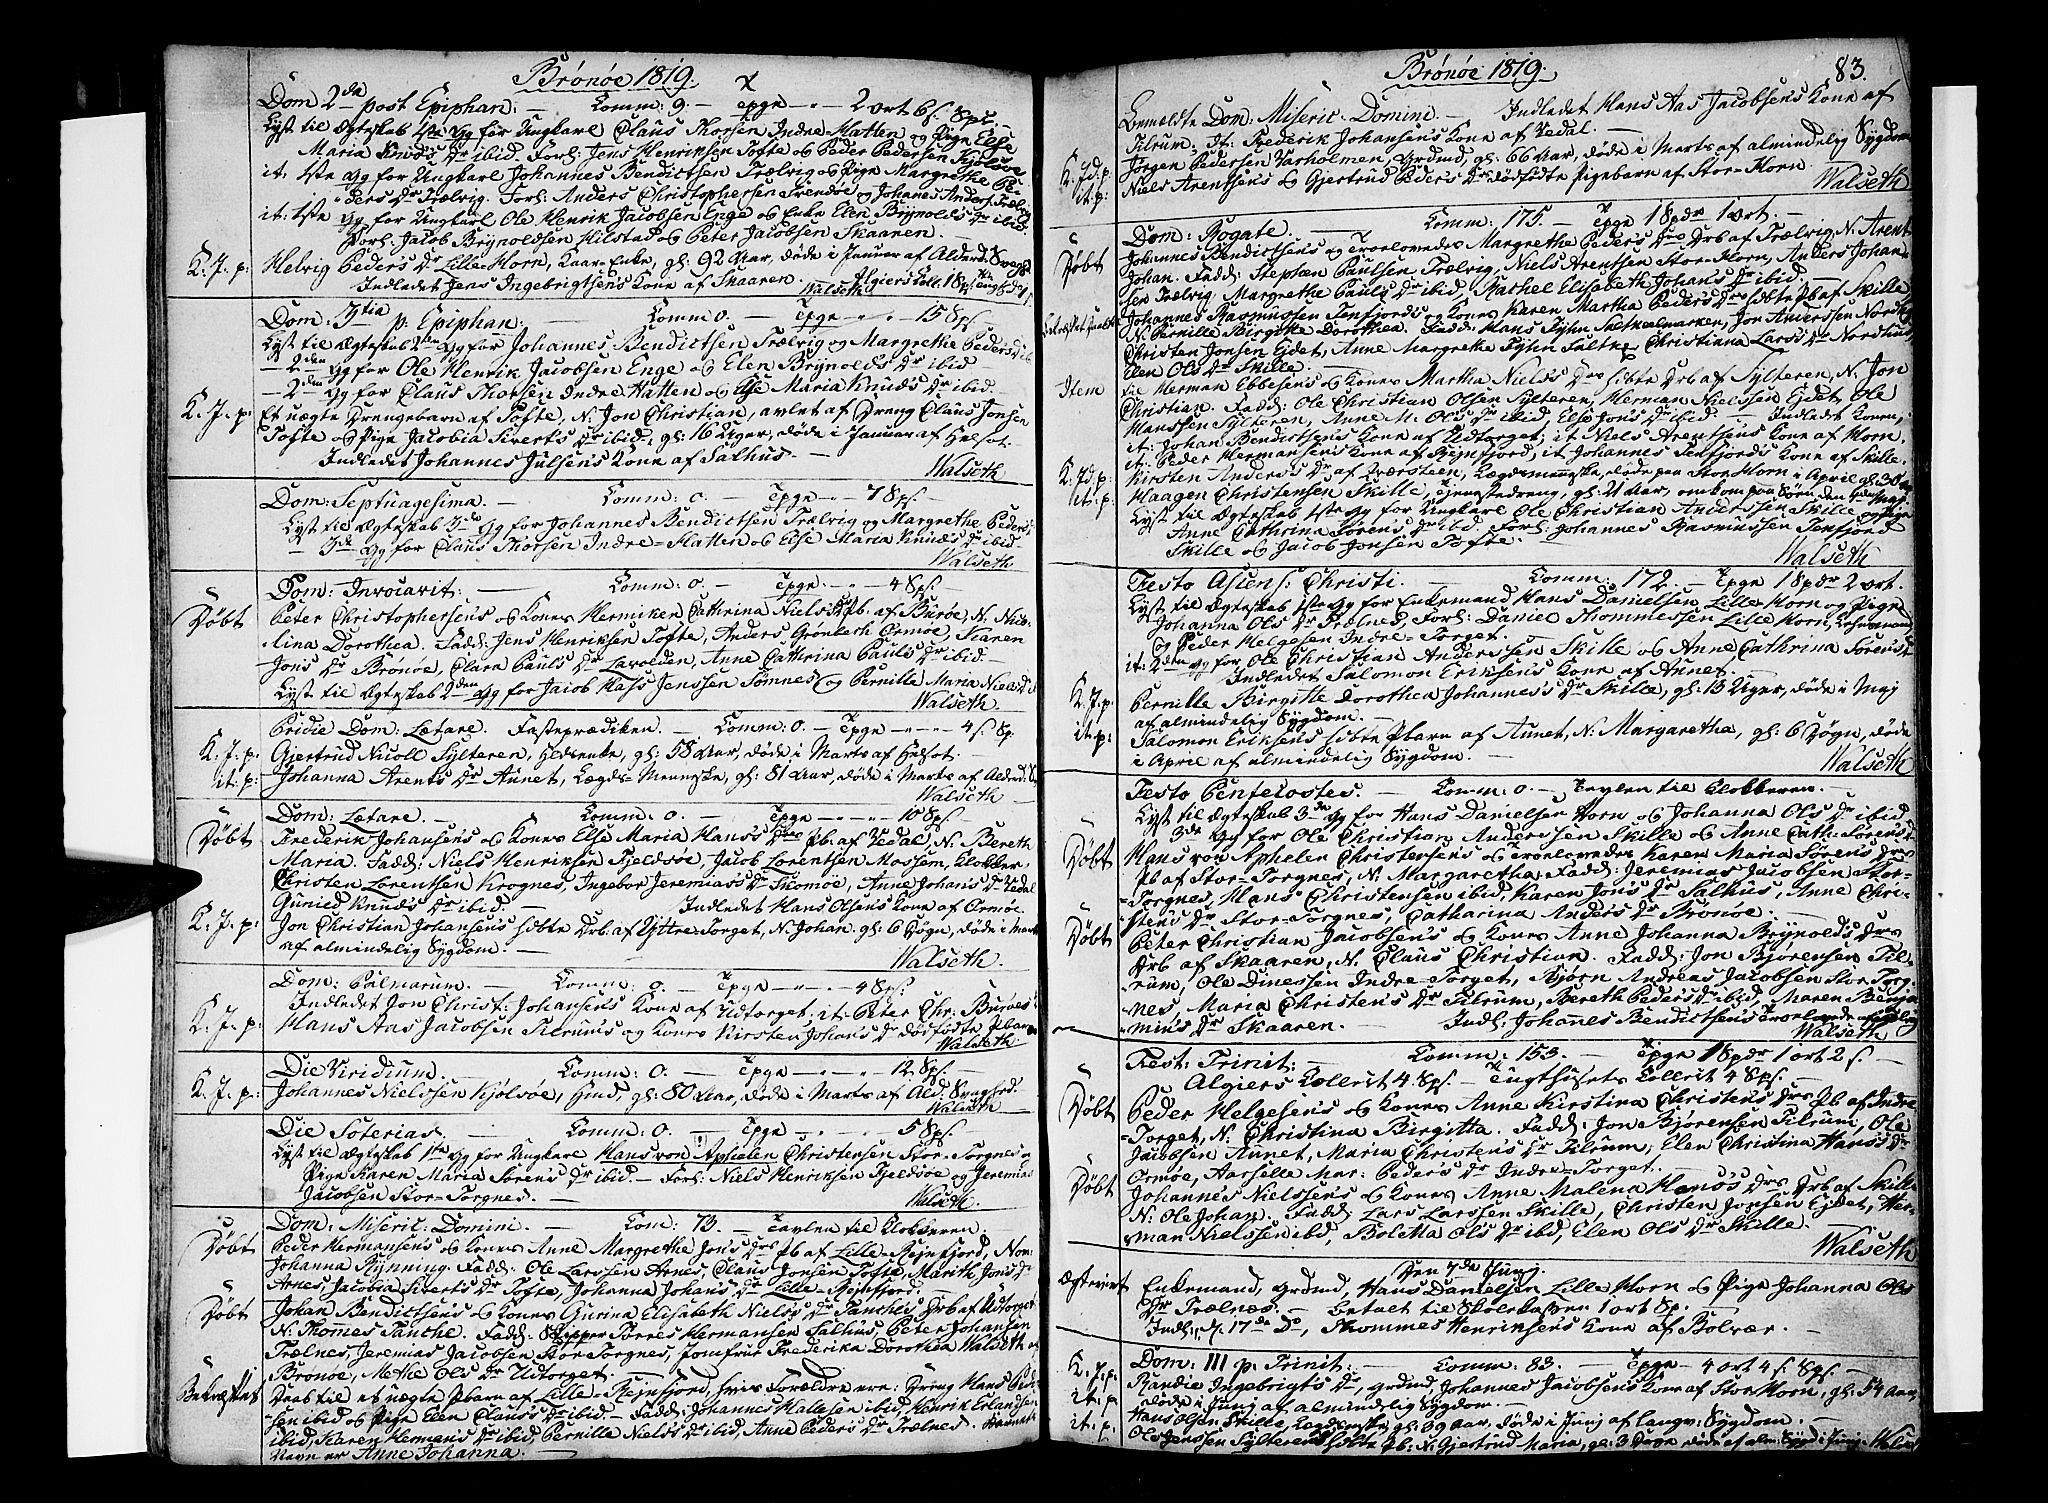 Brönöe 1819.
Dom 2da post Epiphan: — Comm: 9. — Tpge „ - 2 ort 6 s. Spc
Lyst til Ægteskab 1ste Gg for Ungkarl Claus Thorsen Indre-Hatten og Pige Else
Maria Knud's Dr ibid. Forl: Jens Henriksen Tofte og Peder Pedersen
it: 1ste Gg for Ungkarl Johannes Bendictsen Trælvig og Pige Margrethe Pe-
ders Dr Trælvig. Forl: Anders Christophersen Trendöe og Johannes Anders. Trælvig
it: 1ste Gg for Ungkarl Ole Henrik Jacobsen Enge og Enke Elen Brÿnold's Dr ibid.
Forl: Jacob Brÿnoldsen Hilstad og Peter Jacobsen Skaaren. —
K. J. p: Helvig Peder's Dr Lille-Horn, Kaar-Enke, gl: 92 Aar, döde i Januar af Alderd: Svagh
Indledet Jens Ingebrigtsens Kone af Skaaren. Algiers Coll. 18 s.
Walseth
Dom: 3tia p: Epiphan: — Comm 0. — Tpge „ „ — 15 Sps.
Lyst til Ægteskab 2den Gg for Johannes Bendictsen Trælvig og Margrethe Peders Dr ib
— 2den Gg for Ole Henrik Jacobsen Enge og Elen Brÿnold's Dr ibid —
— 2den Gg for Claus Thorsen Indre Hatten og Else Maria Knud's Dr ibid. —
K. J. p: Et uægte Drengebarn af Tofte, N. Jon Christian, avlet af Dreng Claus Jonsen
Tofte og Pige Jacobia Siverts Dr ibid, gl: 16 Uger, döde i Januar af Helsot. —
Indledet Johannes Julsen's Kone af Salhus. —
Walseth
Dom: Septuagesima. — Comm: 0. — Tpge — „ — 7 Sps.
Lyst til Ægteskab 3de Gg for Johannes Bendictsen Trælvig og Margrethe Peders
— 3de Gg for Claus Thorsen Indre-Hatten og Else Maria Knud's Dr ibid —
Walseth
Dom: Invocavit: — Comm: 0. — Tpge. - „ - 4 Sps.
Döbt Peter Christophersen's og Kones Hermiken Cathrina Niels's Pb. af Buröe, N. Nico-
lina Dorothea. Fadd: Jens Henriksen Tofte, Anders Grönbech Ormöe, Karen
Jons Dr Brönöe, Clara Paul's Dr Lavolden, Anne Cathrina Paul's Dr ibid. —
Lyst til Ægteskab 2den Gg for Jacob Hass Jenssen Sömnes og Pernille Maria Niels Dr
Walseth
Pridie Dom: Lætare. Fasteprædiken. — Comm: 0. — Tpge — — 4 s. Sp.
K. J. p: Gjertrud Nicoll Sylteren, Hdsenke, gl: 58 Aar, döde i Marts af Helsot. —
it: p: Johanna Arents Dr Aunet, Lægds-Menneske, gl: 81 Aar, döde i Marts af Alderd: S
Walseth
Dom: Lætare. — Comm: 0. — Tpge — „ — „ — 10 Sps.
Döbt Frederik Johansen's og Kones Else Maria Hans's Dres Pb. af Vedal, N. Bereth
Maria. Fadd: Niels Henriksen Fjeldsöe, Jacob Lorentsen Moshem, Clokker
Christen Lorentsen Krognes, Ingebor Jeremias's Dr Skomöe, Anne Johans Dr Vedal
Gunild Knud's Dr ibid. — Indledet Hans Olsens Kone af Ormöe.
K. J. p: Jon Christian Johansens hibte Drb. af Yttre-Torget, N. Johan. gl: 6 Dögn, döde i Mart
af almindelig Sygdom. —
Walseth.
Dom: Palmarum. — Comm: 0. — Tpge - „ - „ - 4 Sps.
Indledet Jon Christ: Johansens Kone af Udtorget, it: Peter Chr: Buröes
K. J. p: Hans Aas Jacobsen Tilrums og Kones Kirsten Johans Dr dödfödte Pbarn
Walseth.
Die Viridium. — Comm: 0. — Tpge — „ — 12 Sps.
K. J. p: Johannes Nielssen Kjölsöe, Hmd, gl: 80 Aar, döde i Marts af Ald: Svaghed.
Walseth
Die Soterias. — Comm: 0. — Tpge — „ — 5 Sps.
Lyst til Ægteskab 1ste Gg for Ungkarl Hans von Aphelen Christensen Stor-Torgnes og
Pige Karen Maria Sörens Dr ibid. — Forl: Niels Henriksen Fjeldsöe og Jeremias
Jacobsen Stor-Torgnes. —
Walseth.
Dom: Miseric: Domini. — Com: 73. — Tavlen til Clokkeren. —
Döbt Peder Hermansen's og Kones Anne Margrethe Jon's Dres Pb af Lille-Rejnfjord, Nom:
Johanna Rÿnning. Fadd: Ole Larssen Arnes, Claus Jonsen Tofte, Marith Jons Dr
Arnes, Jacobia Siverts Dr Tofte, Johanna Johans Dr Lille-Rejnfjord.
Döbt Johan Bendictsens og Kones Gurina Elisabeth Niels's Dr Tanches Drb af Udtorget
N. Thomes Tanche. Fadd: Skipper Börres Hermansen Salhus, Peter Johansen
Trælnes, Jeremias Jacobsen Stor Torgnes, Jomfrue Frederika Dorothea Walseth af
Brönöe, Methe Ols Dr Udtorget. —
Bekræftet Daab til et uægte Pbarn af Lille-Rejnfjord, hvis Forældre ere: Dreng Hans Peder
sen ibid og Pige Elen Claus's Dr ibid. — Fadd: Johannes Halesen ibid, Henrik Erlandsen
ibid, Karen Hermans Dr ibid, Pernille Niels Dr ibid, Anne Peders Dr Trælnes.
Navn er Anne Johanna. —
Brönöe 1819. 83.
Bemeldte Dom: Miseric: Domini. — Indledet Hans Aas Jacobsens Kone af
Tilrum. It: Frederik Johansen's Kone af Vedal. —
K. Jd. p. Jörgen Pedersen Varholmen, Grdmd, gl: 66 Aar, döde i Marts af almindelig Sygdom
it: p: Niels Arentsen's og Gjertrud Peder's Dr dödfödte Pigebarn af Stor-Horn.
Walseth
Dom: Rogate. — Comm: 175. — Tpge 1 Spdr 1 ort. —
Döbt Johannes Bendictsen's og Trolovedes Margrethe Peder's Dres Drb af Trælvig, N. Arent
Johan. Fadd: Stephen Paulsen Trælvig, Niels Arentsen Stor-Horn, Anders Johan-
sen Trælvig, Margrethe Paul's Dr ibid, Rachel Elisabeth Johans Dr ibid.
Johannes Rasmussen Tenfjords og Kones Karen Martha Peder's Dres hibte Pb af Skille
N. Pernille Birgitte Dorothea. Fadd: Hans Tÿhn Saltkjelmarken, Jon Anderssen Nordhus
Christen Jonsen Ejdet, Anne Margrethe Tÿhn Saltkj: Christiana Lars's Dr Nordhus
Elen Ols Dr Skille. —
Item Herman Ebbesen's og Kones Martha Niels's Dres hibte Drb af Sylteren, N. Jon
Christian. Fadd: Ole Christian Olsen Sylteren, Herman Nielssen Ejdet, Ole
Hanssen Sylteren, Anne M. Ols Dr ibid, Else Jons Dr ibid. — Indledet Konen,
it: Johan Bendictsens Kone af Udtorget, it Niels Arentsen's Kone af Horn.
it: Peder Hermansen's Kone af Rejnfjord, it Johannes Tenfjords Kone af Skille.
K. Jd. p: Kirsten Anders's Dr af Tværsteen, Lægdsmennske, döde paa Stor Horn i April gl: 30
it: p: Haagen Christensen Skille, Tjenestedreng, gl: 21 Aar, omkom paa Söen den
Lyst til Ægteskab 1ste Gg for Ungkarl Ole Christian Anderssen Skille og Pige
Anne Cathrina Sörens Dr ibid. Forl: Johannes Rasmussen Tenfjord
Skille og Jacob Jonsen Tofte. —
Walseth
Festo Ascens: Christi. — Comm: 172. — Tpge 1 Spdr 2 ort.
Lyst til Ægteskab 1ste Gg for Enkemand Hans Danielsen Lille Horn og Pige
Johanna Ols Dr Trælnes. Forl: Daniel Thommessen Lille Horn,
og Peder Helgesen Indre-Torget.
it: 2den Gg for Ole Christian Anderssen Skille og Anne Cathrina Sörens Dr
Indledet Salomon Eriksen's Kone af Aunet. —
K. J. p. Pernille Birgitte Dorothea Johannes's Dr Skille, gl: 13 Uger, döde i Maj
af almindelig Sygdom. —
it: p: Salomon Eriksen's hibte Pbarn af Aunet, N: Margaretha, gl: 6 Dögn, döde
i April af almindelig Sygdom. —
Walseth
Festo Pentecostes. — Comm: 0. — Tavlen til Clokkeren. —
Lyst til Ægteskab 3de Gg for Hans Danielsen Horn og Johanna Ols Dr ibid
3de Gg for Ole Christian Anderssen Skille og Anne Cath: Sörens Dr
Döbt Hans von Aphelen Christensen's og Trolovedes Karen Maria Sören's Dres
Pb af Stor-Torgnes, N. Margaretha. Fadd: Jeremias Jacobsen Stor-
Torgnes, Hans Christensen ibid, Karen Jons Dr Salhus, Anne Chri-
stens Dr Stor-Torgnes, Catharina Anders Dr Brönöe. —
Döbt Peter Christian Jacobsen's og Kones Anne Johanna Brÿnold's Dres
Drb af Skaaren, N. Claus Christian. Fadd: Jon Björensen Til-
rum, Ole Dinessen Indre-Torget, Bjørn Andreas Jacobsen Stor-Torg-
nes, Maria Christen's Dr Tilrum, Bereth Peder's Dr ibid, Maren Benja
min's Dr Skaaren. — Indl: Johannes Bendictsen's Trolovede
Walseth
Fest: Trinit: — Comm: 153. — Tpge 1 Spdr 1 ort 2 s. —
Algiers Collect 4 Sps. — Tugthusets Collect 4 Sps. —
Döbt Peder Helgesen's og Kones Anne Kirstina Christen's Dres Pb. af Indre
-Torget, N: Christina Birgitta. Fadd: Jon Björensen Tilrum, Ole
Jacobsen Aunet, Maria Christen's Dr Tilrum, Elen Christina Hans's Dr
Ormöe, Aarselle Mar: Peder's Dr Indre-Torget. —
Döbt Johannes Nielssen's og Kones Anne Malena Hans's Dres Drb af Skille
N: Ole Johan. Fadd: Lars Larssen Skille, Christen Jonsen Ejdet, Her-
man Nielssen ibd, Boletta Ols Dr ibid, Elen Ols Dr Skille. —
Walseth
Den 7de Junj.
Ægteviet Enkemand, Grdmd, Hans Danielsen Lille Horn og Pige Johanna Ols
Dr Trælnes. — Betalt til Skolekassen 1 ort Sp. —
Indl: d. 17de Do, Thommes Henriksen's Kone af Bolvær. —
Dom: III p: Trinit: — Comm: 83. — Tpge — 4 ort 4 s. Sps. —
K. J. p. Randie Ingebrigts Dr, Grdmd, Johannes Jacobsens Kone af Stor Horn, gl: 54 Aar,
döde i Junj af almindelig Sygdom. —
it: p. Hans Olsen Skille, gl: 39 Aar, döde i Junj af langv: Sygdom. —
it: p. Ole Jenssen Sylterens hibte Pb. N: Gjertrud Maria, gl: 3 döde af alm: Sygd: i Junj. Walseth